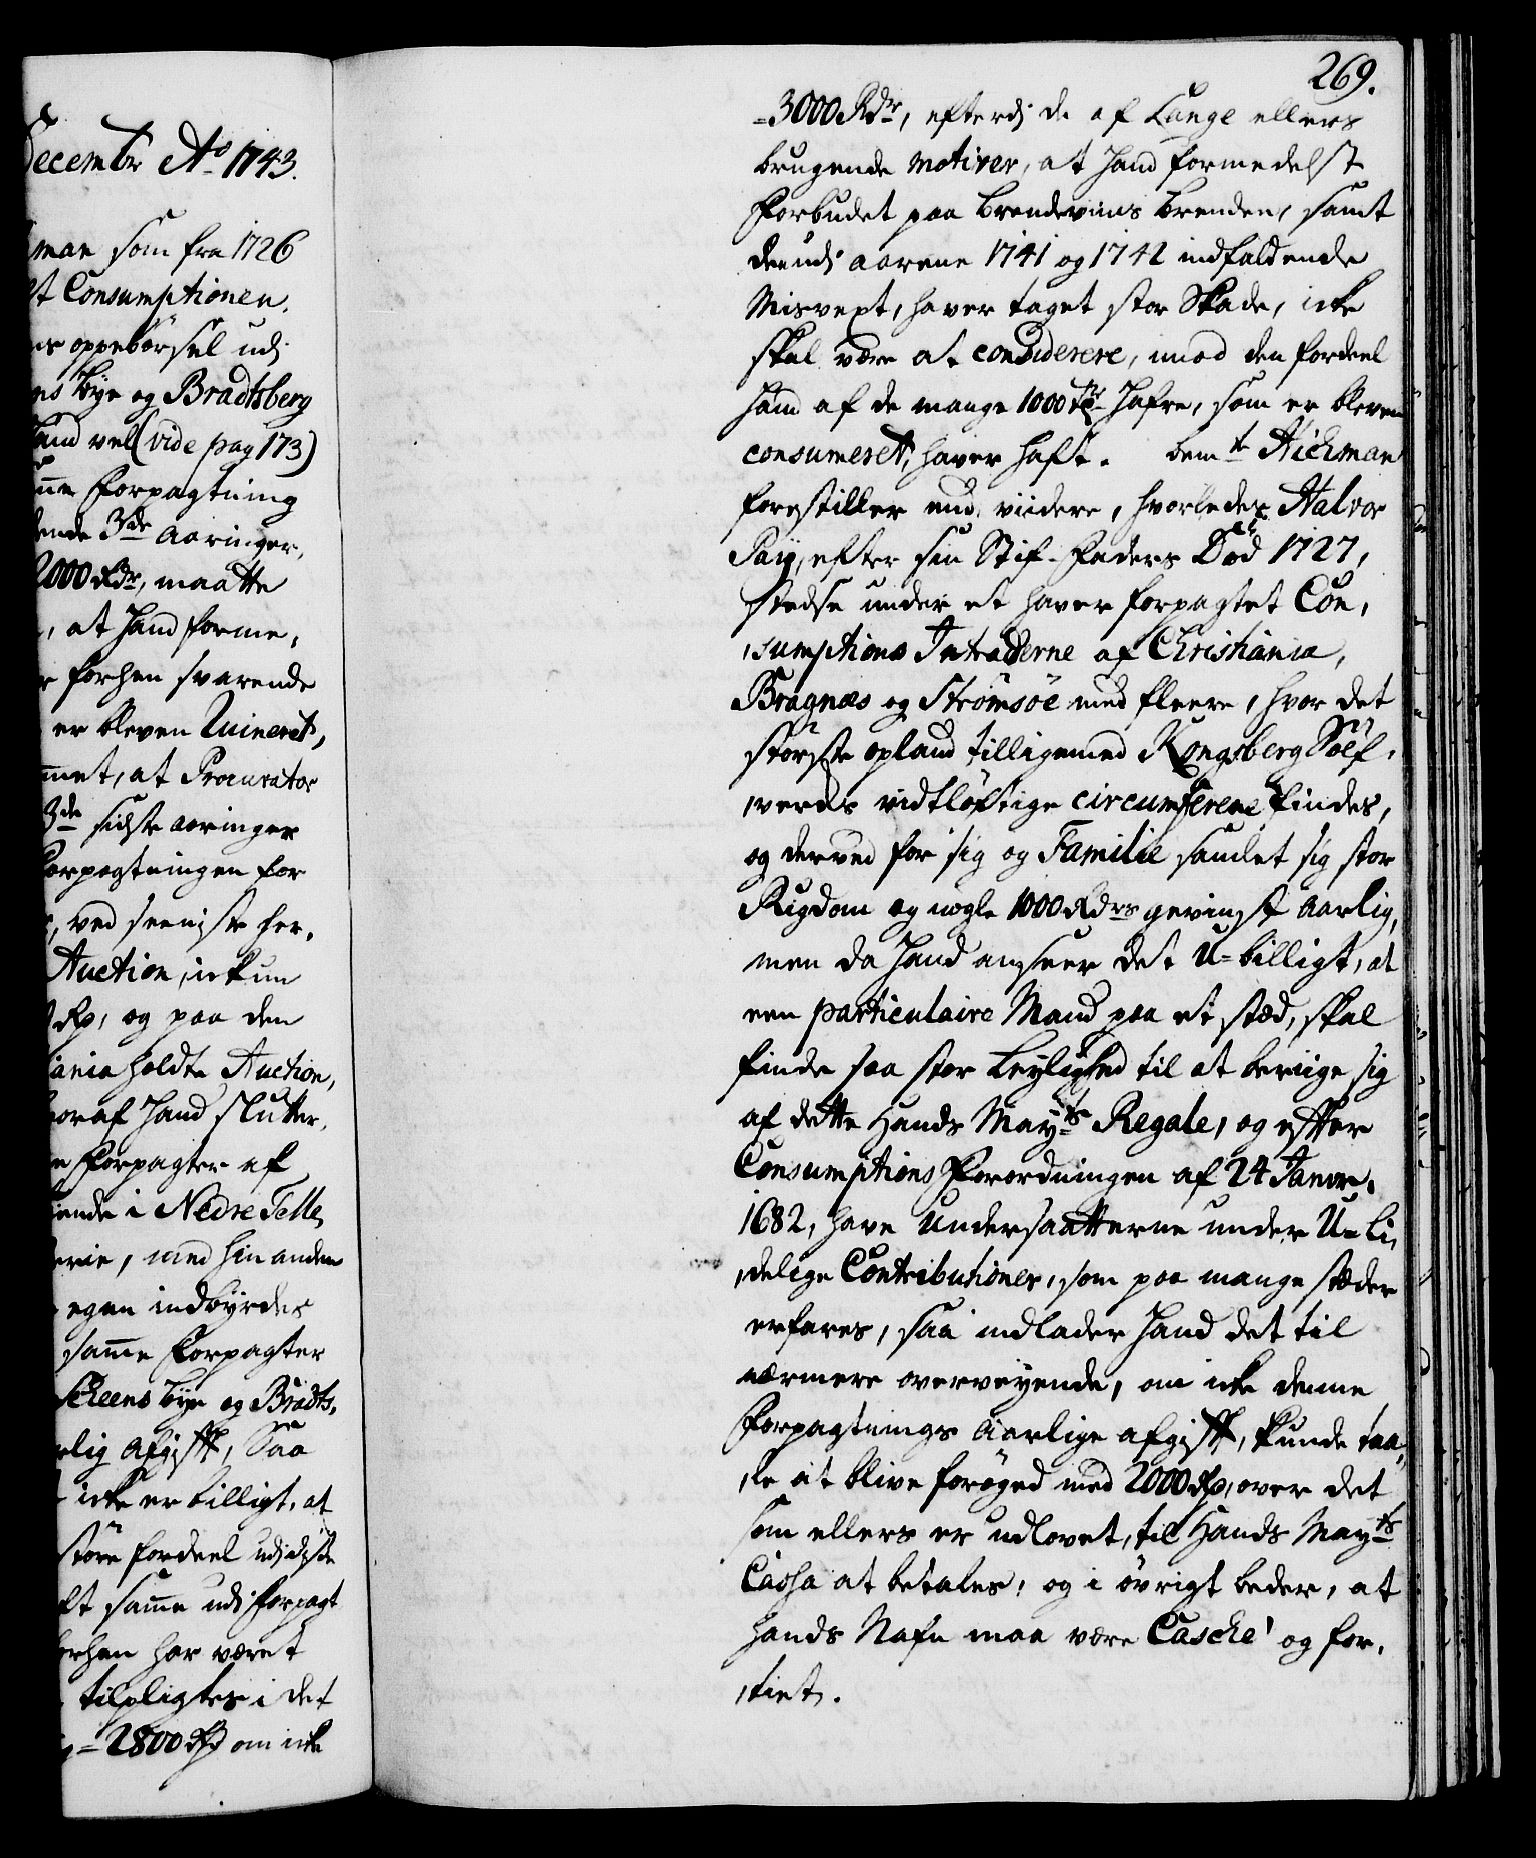 Decembr Ao 1743.
man som fra 1726
Consumptionen,
oppebörsel udj
bye og Bradtsberg
vel (vide pag 173)
Forpagtning
3de Aaringer,
2000 Rdr, maatte
, at Hand forme,
forhen svarende
er bleven Ruineret,
met, at Procurator
3de sidste Aaringer
Forpagtningen for
, ved seeniste for,
Auction, ickun
Rd, og paa den
ania holdte Auction,
hvoraf Hand slutter,
Forpagter af
i Nedre Telle,
erie, med hin anden
egen indbyrdes
samme Forpagter
Scheens bye og Bradts,
Afgift, Saa
icke er billigt, at
större fordeel udj diste
samme udj forpagt
forhen har været
tilpligtes i det
2800 Rd om icke
269.
=3000 Rdr, efterdj de af Lange ellers
brugende motiver, at Hand formedelst
Forbudet paa Brendeviins Brenden, samt
den udj Aarene 1741 og 1742 indfaldende
Misvext, haver taget stor Skade, icke
skal være at considerere, imod den fordeel
Hand af de mange 1000 Tr Hafre, som er bleven
consumeret, haver haft. bemte Hickman
forestiller end viidere, hvorledes Halvor
Paij, efter sin Stif-Faders Död 1727,
stedse under et haver forpagtet Con,
,sumptions Intraderne af Christiania,
Bragnæs og Strömsöe med fleere, hvor det
störste opland tilligemed Kongsberg Sölf,
,verks vidtlöftige circumference findes,
og derved for sig og Familie samlet sig stor
Rigdom og nogle 1000 Rdrs gevinst Aarlig,
men da Hand anseer det U-billigt, at
een particulaire Mand paa et stæd, skal
finde saa stor Leylighed til at beriige sig
af dette Hands Mayts Regale, og efter
Consumptions Forordningen af 24 Janvr.
1682, have Undersaatterne under U-li,
,delige Contributioner, som paa mange stæder
erfares, saa indlader Hand det til
nærmere overveyende, om icke denne
Forpagtnings Aarlige Afgift, kunde taa,
,le at blive forøged med 2000 Rd, over det
som ellers er udlovet, til Hands Mayts
Cassa at betales, og i övrigt beder, at
Hands Nafn maa være Casché og for,
,tiet.